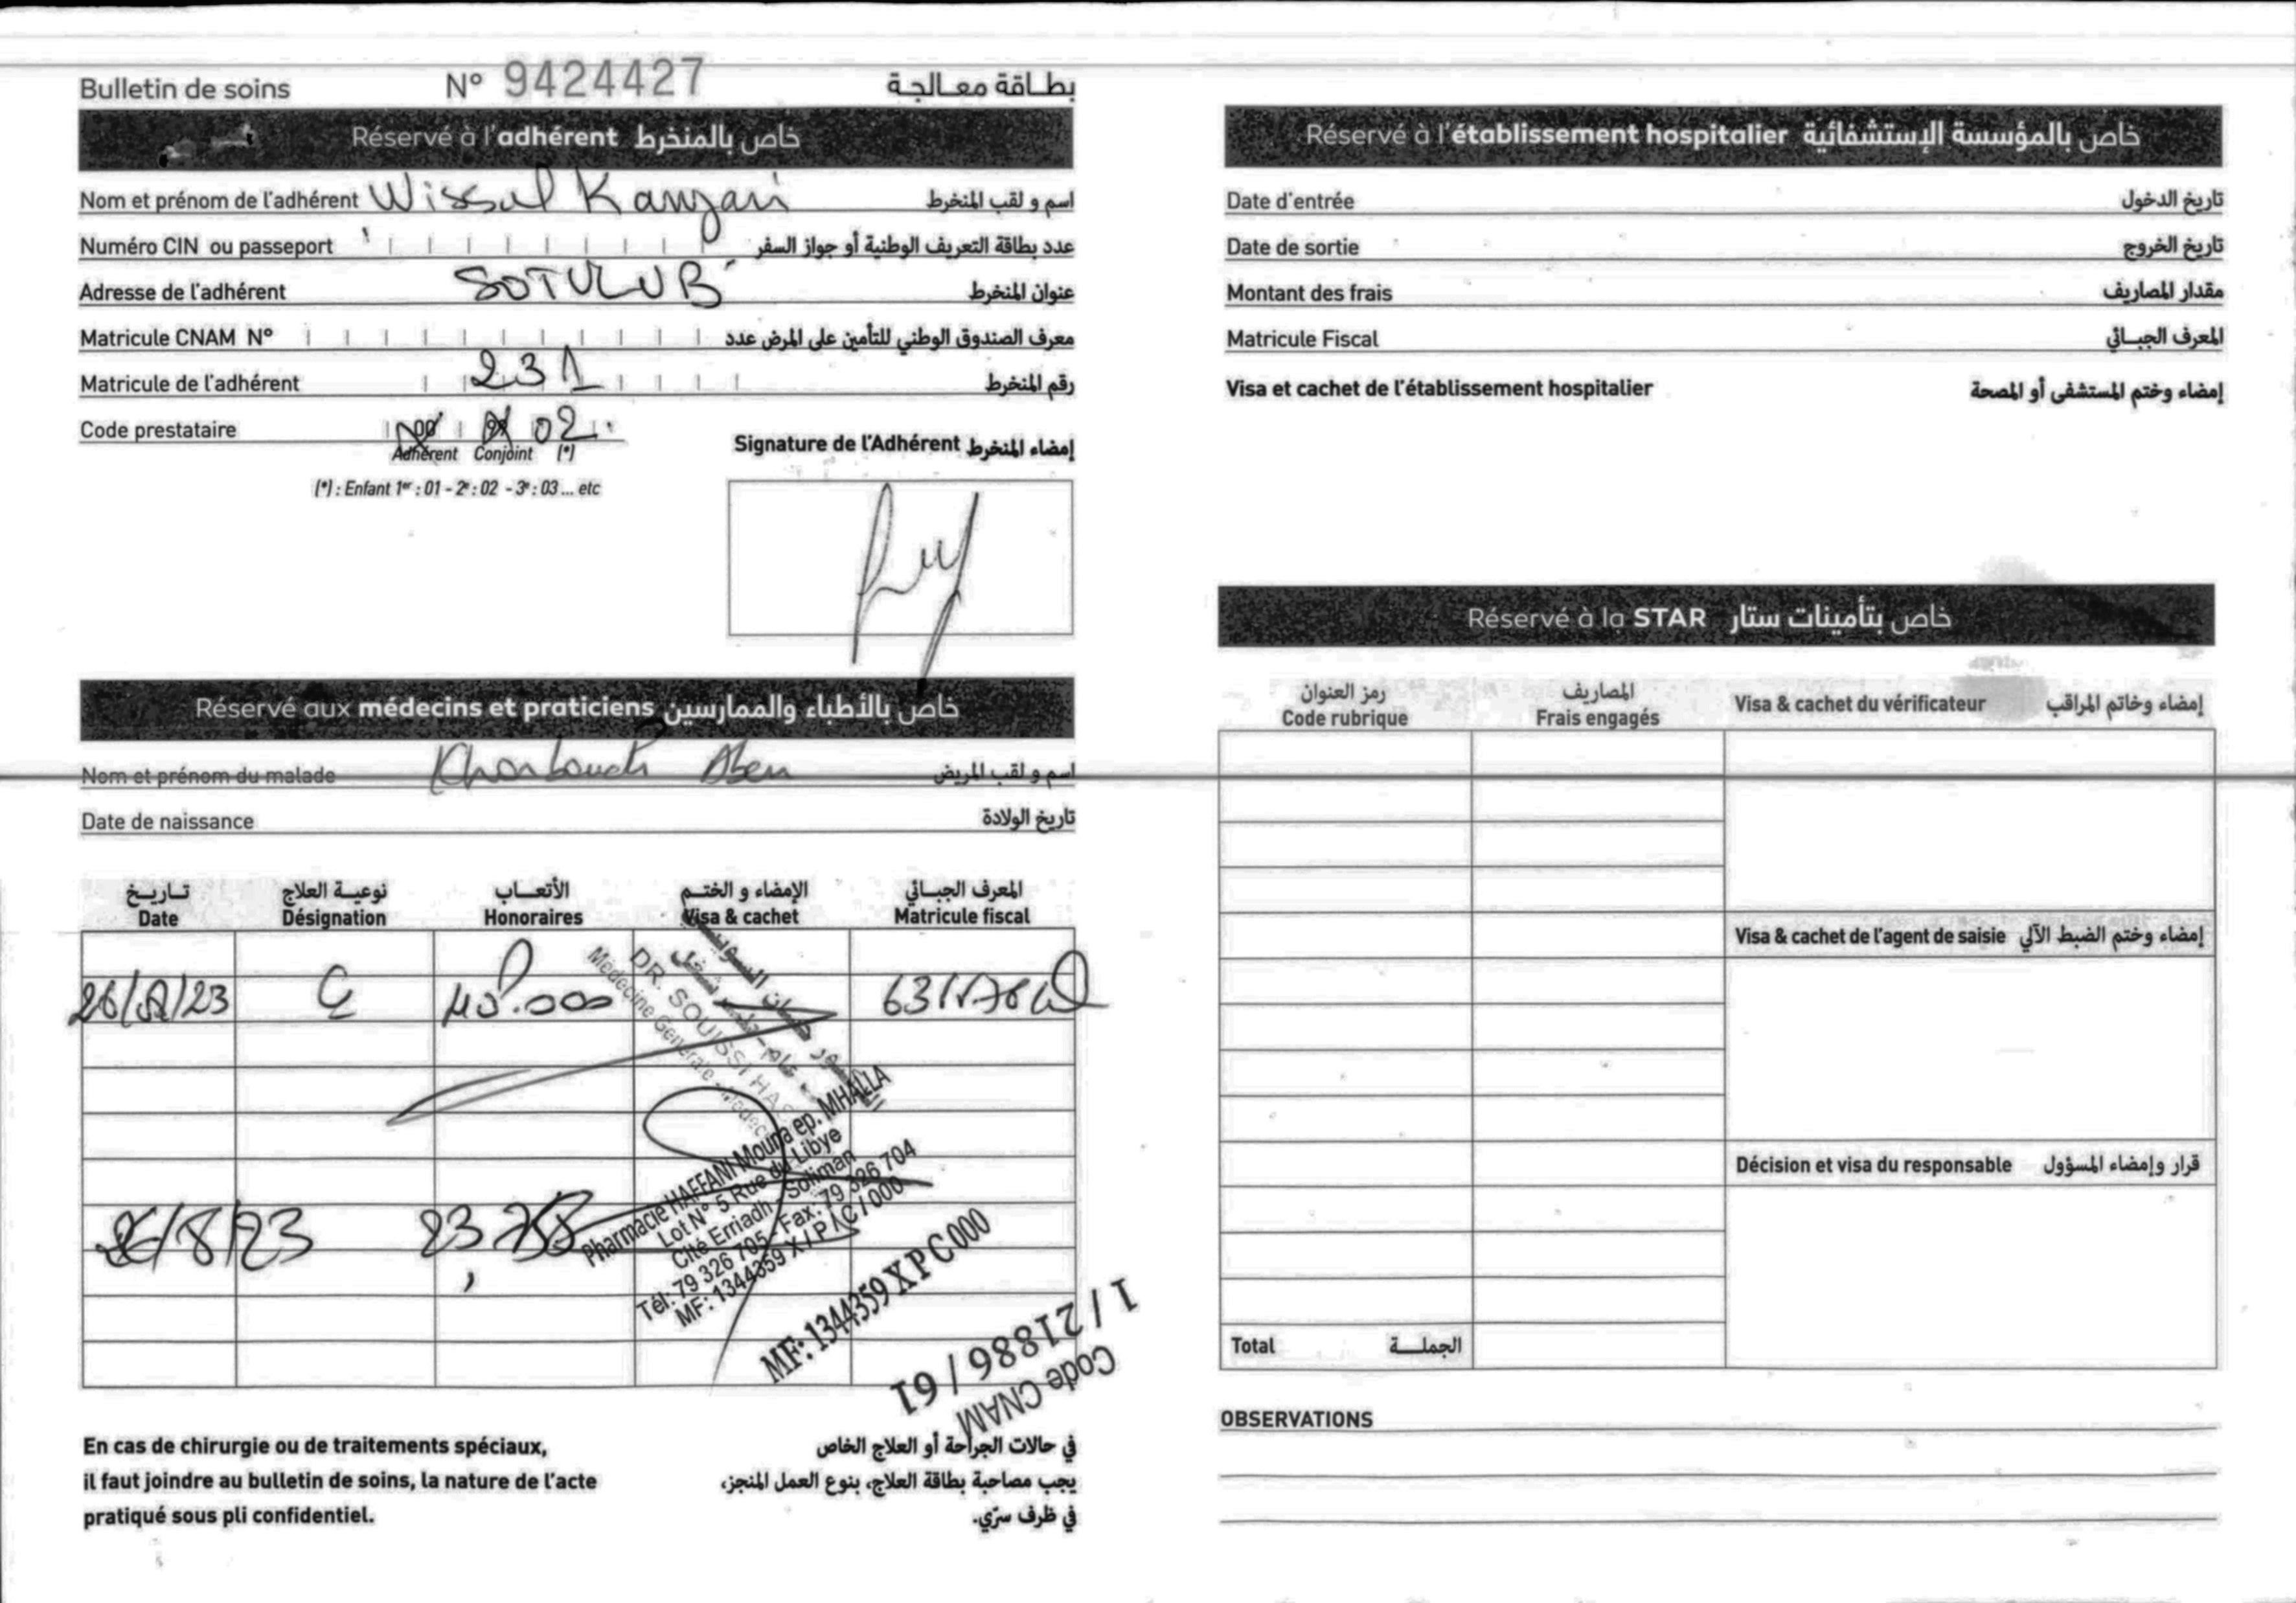 Bulletin de soins N° 9424427 بطاقة معالجة
Réservé à l'adhérent خاص بالمنخرط
Nom et prénom de l'adhérent Wissal Kanzari اسم و لقب المنخرط
Numéro CIN ou passeport عدد بطاقة التعريف الوطنية أو جواز السفر
Adresse de l'adhérent SOTULUB عنوان المنخرط
Matricule CNAM N° معرف الصندوق الوطني للتأمين على المرض عدد
Matricule de l'adhérent 231 رقم المنخرط
Code prestataire 00 99 02
Adhérent Conjoint (*)
(*) : Enfant 1er : 01 - 2e : 02 - 3e : 03 ... etc
Signature de l'Adhérent إمضاء المنخرط
Réservé aux médecins et praticiens خاص بالأطباء والممارسين
Nom et prénom du malade اسم و لقب المريض
Date de naissance تاريخ الولادة
تاريخ نوعية العلاج الأتعاب الإمضاء و الختم المعرف الجبائي
Date Désignation Honoraires Visa & cachet Matricule fiscal
26/8/23 C
DR. SOUISSI
Médecine Générale
26/8/23 23,
Pharmacie HAFFANI Mouna ep. MHALLA
Lot N° 5 Rue du Libye
Cité Erriadh - Soliman
Tél: 79 326 705 - Fax. 79 326 704
MF: 1344359 X / P / C / 000
MF: 1344359 X P C 000
Code CNAM
1 / 21886 / 61
En cas de chirurgie ou de traitements spéciaux,
il faut joindre au bulletin de soins, la nature de l'acte
pratiqué sous pli confidentiel.
في حالات الجراحة أو العلاج الخاص
يجب مصاحبة بطاقة العلاج، بنوع العمل المنجز،
في ظرف سرّي.
Réservé à l'établissement hospitalier خاص بالمؤسسة الإستشفائية
Date d'entrée تاريخ الدخول
Date de sortie تاريخ الخروج
Montant des frais مقدار المصاريف
Matricule Fiscal المعرف الجبائي
Visa et cachet de l'établissement hospitalier إمضاء وختم المستشفى أو المصحة
Réservé à la STAR خاص بتأمينات ستار
رمز العنوان المصاريف
Code rubrique Frais engagés Visa & cachet du vérificateur إمضاء وخاتم المراقب
Visa & cachet de l'agent de saisie إمضاء وختم الضبط الآلي
Décision et visa du responsable قرار وإمضاء المسؤول
Total الجملة
OBSERVATIONS